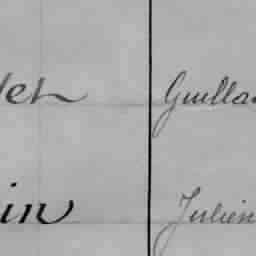 let Guilla
in Julien